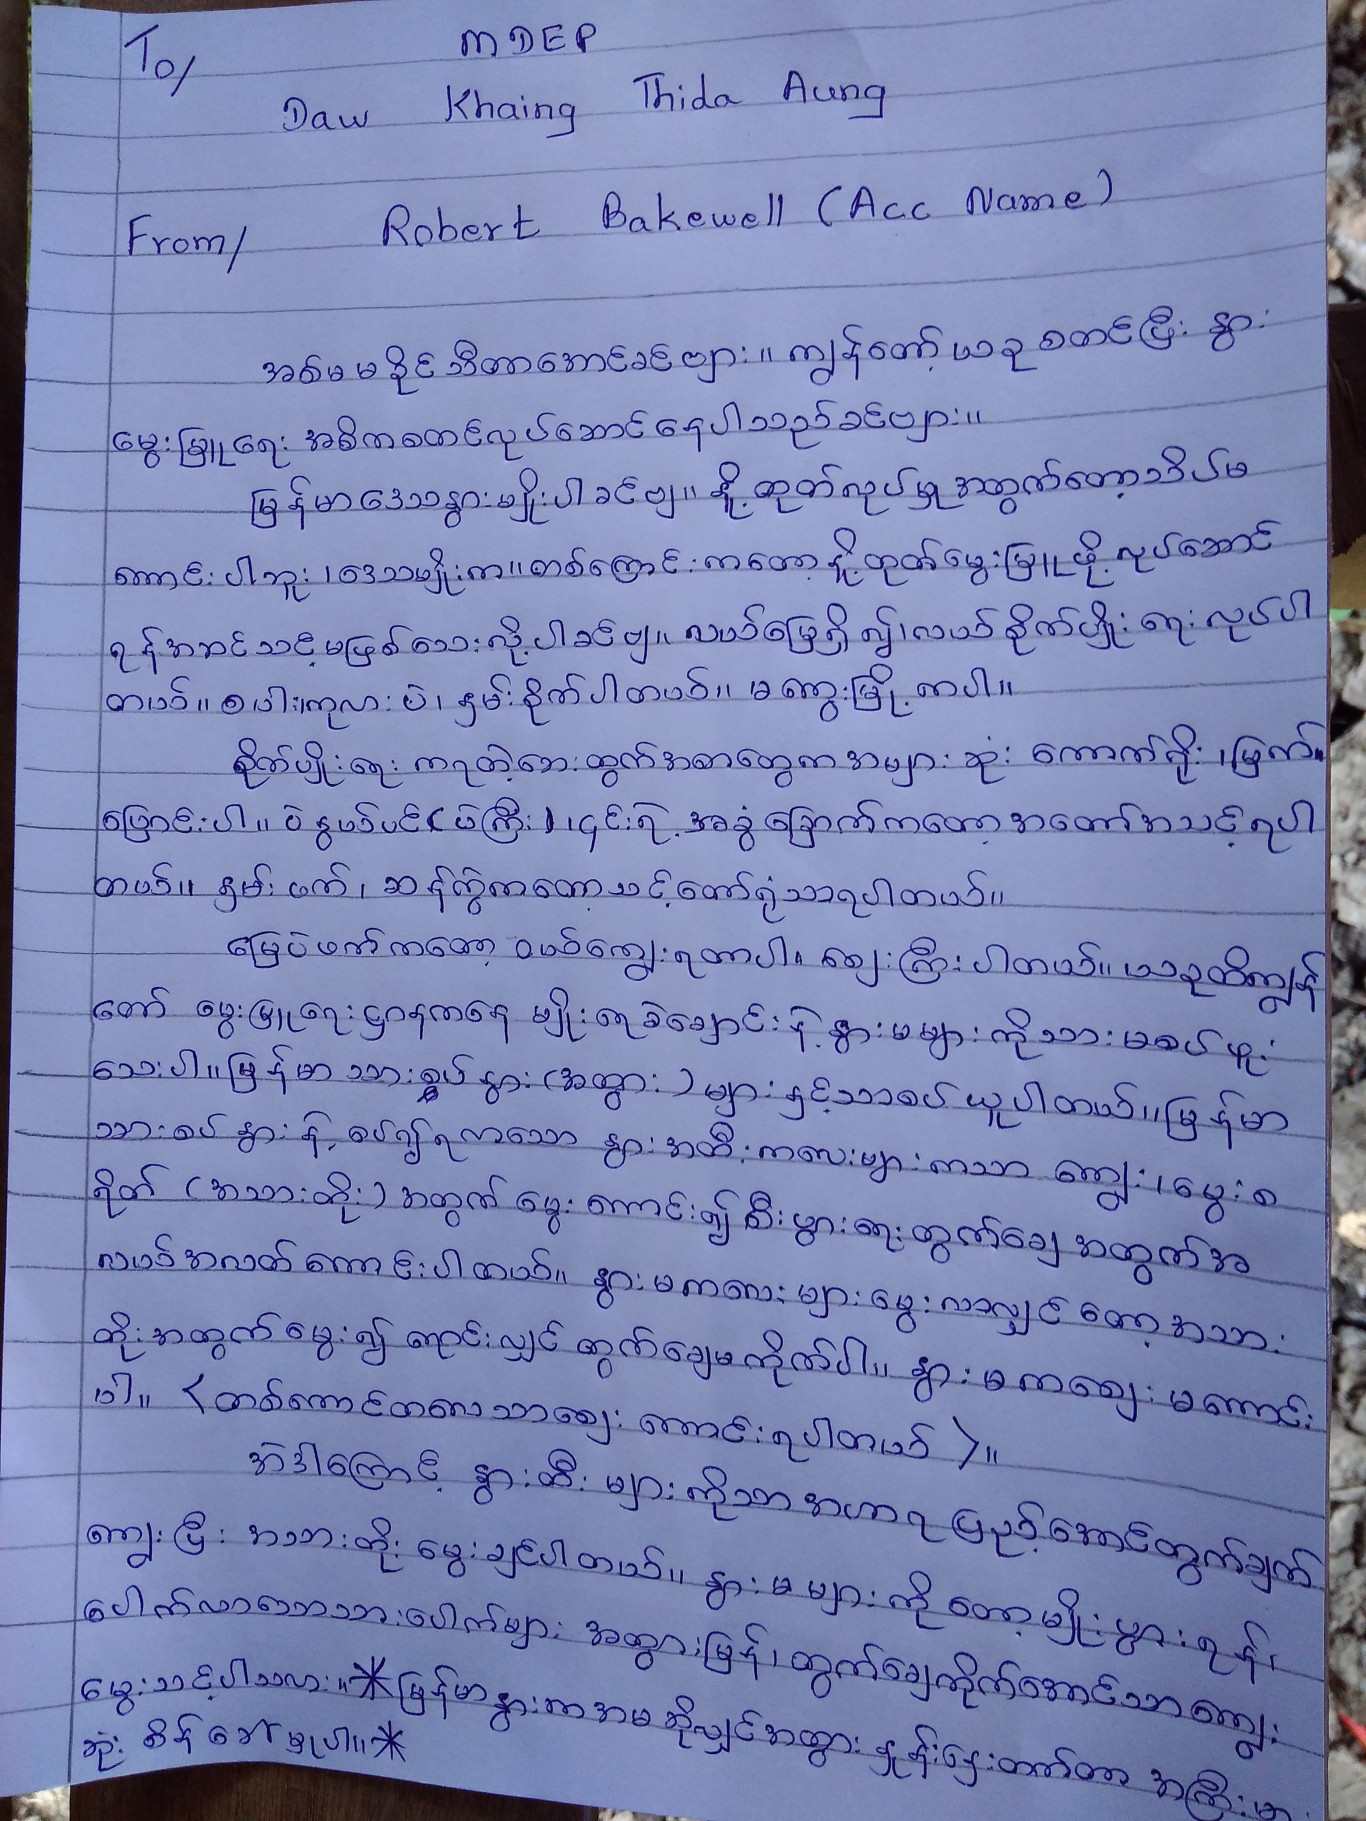 To/
MDEP
Daw Khaing Thida Aung
From/ Robert Bakewell (Acc Name)
အစ်မမခိုင်သီတာအောင်ခင်ဗျား။ ကျွန်တော့် ယခု စတင်ပြီး နွား
မွေးမြူရေး အဓိကစတင်လုပ်ဆောင်နေပါသည်ခင်ဗျား။
မြန်မာဒေသနွားမျိုးပါခင်ဗျ။ နို့ထုတ်လုပ်မှုအတွက်တော့သိပ်မ
ကောင်းပါဘူး၊ ဒေသမျိုးက။ တစ်ကြောင်းကတော့ နို့ထုတ်မွေးမြူဖို့ လုပ်ဆောင်
ရန်အဆင်သင့်မဖြစ်သေးလို့ပါခင်ဗျ။ လယ်မြေရှိ၍၊ လယ် စိုက်ပျိုးရေးလုပ်ပါ
တယ်။ စပါး၊ကုလားပဲ၊ နှမ်းစိုက်ပါတယ်။ မကွေးမြို့ကပါ။
စိုက်ပျိုးရေးကရတဲ့ဘေးထွက်အစာတွေကအများဆုံး ကောက်ရိုး၊ မြက်
ပြောင်းပါ။ ပဲနွယ်ပင်(ပဲကြီး)၊ ၎င်းရဲ့အခွံခြောက်ကတော့အတော်အသင့်ရပါ
တယ်။ နှမ်းဖတ်၊ ဆန်ကွဲကတော့သင့်တော်ရုံသာရပါတယ်။
မြေပဲဖတ်ကတော့ ဝယ်ကျွေးရတာပါ။ ဈေးကြီးပါတယ်။ ယခုထိကျွန်
တော် မွေးမြူရေးဌာနကနေ မျိုးရေခဲချောင်းနဲ့ နွားမများကိုသားမစပ်ဖူး
သေးပါ။ မြန်မာ သားစပ်နွား(အထွား)များနှင့်သာစပ်ယူပါတယ်။ မြန်မာ
သားစပ်နွားနဲ့ စပ်၍ရလာသော နွားအထီးကလေးများကသာ ကျွေး၊ မွေးစ
ရိတ် (အသားတိုး) အတွက် မွေးကောင်း၍ စီးပွားရေးတွက်ချေအတွက်အ
လယ်အလတ်ကောင်းပါတယ်။ နွားမကလေးများမွေးလာလျှင်တော့အသား
တိုးအတွက်မွေး၍ ရောင်းလျှင် တွက်ချေမကိုက်ပါ။ နွားမကဈေးမကောင်း
ပါ။ <တစ်ကောင်တလေသာဈေးကောင်းရပါတယ်>။
အဲဒါကြောင့် နွားထီးများကိုသာအဟာရပြည့်အောင်တွက်ချက်
ကျွေးပြီး အသားတိုးမွေးချင်ပါတယ်။ နွားမများကိုတော့မျိုးပွားရန်၊
ပေါက်လာသောသားပေါက်များ အထွားမြန်၊ တွက်ချေကိုက်အောင်သာကျွေး
မွေးသင့်ပါသလား။ * မြန်မာနွားကအမဆိုလျှင်အထွားနှုန်းနှေးတတ်တာ အကြီးမား
ဆုံး စိန်ခေါ်မှုပါ။ *